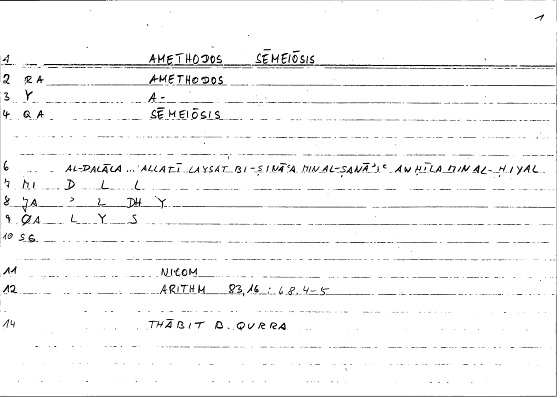 1
1 AMETHODOS SĒMEIŌSIS
2 RA AMETHODOS
3 Y A-
4 QA SĒMEIŌSIS
6 AL-DALĀLA ... ALLATĪ LAYSAT BI-ṢINĀʿA MIN AL-ṢANĀʾIʿ AW ḤĪLA MIN AL-ḤIYAL
7 MI D L L
8 JA ʾ L DH Y
9 ØA L Y S
10 SG
11 NICOM
12 ARITHM 83,16 : 68.4-5
14 THĀBIT B. QURRA